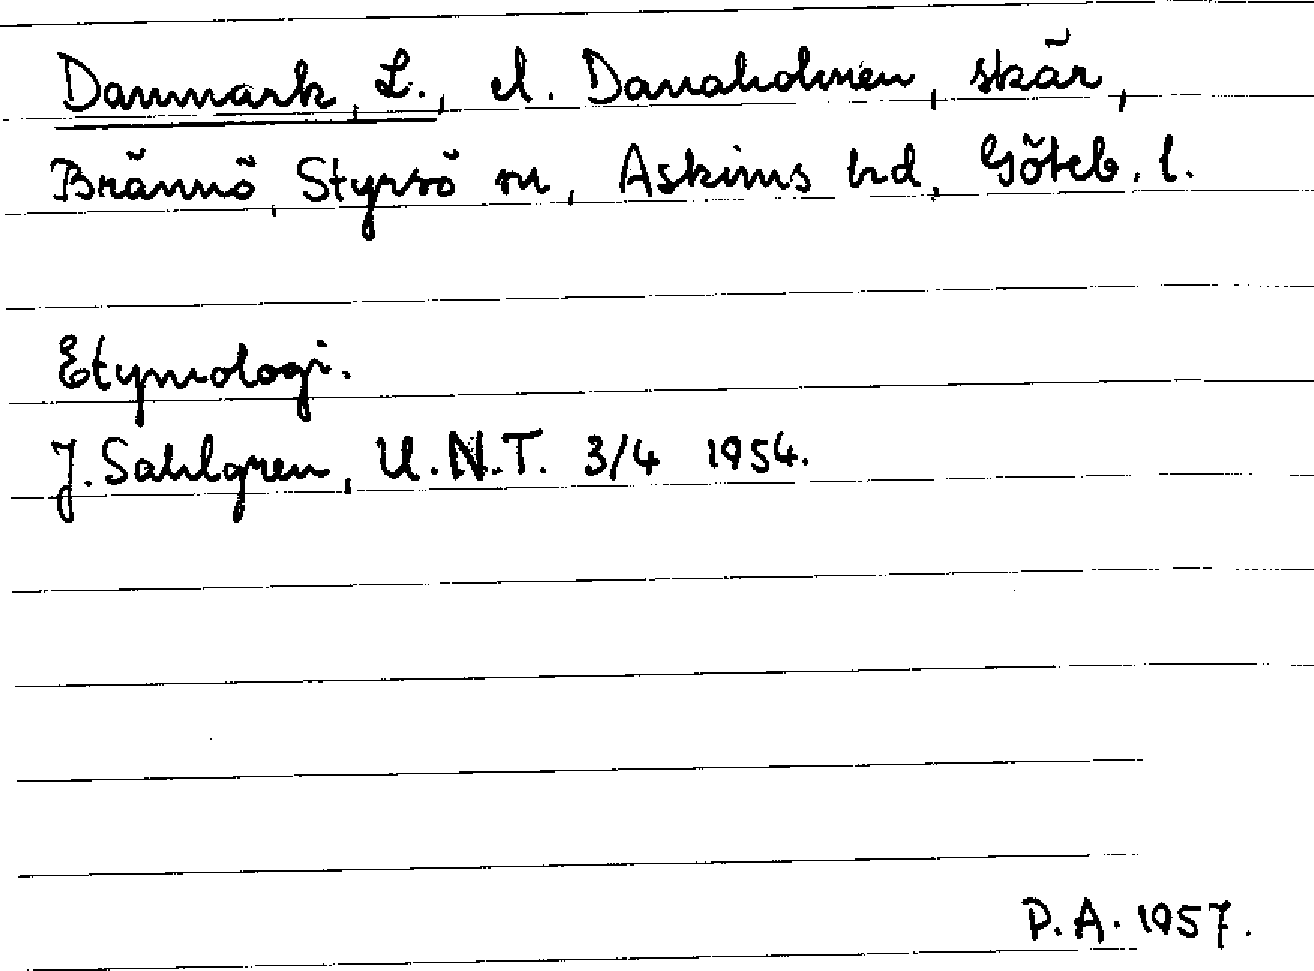 Danmark, L., el. Danaholmen, skär,
Brännö, Styrsö sn, Askims hd, Göteb. l.
Etymologi.
J. Sahlgren, U.N.T. 3/4 1954.
P.A. 1957.